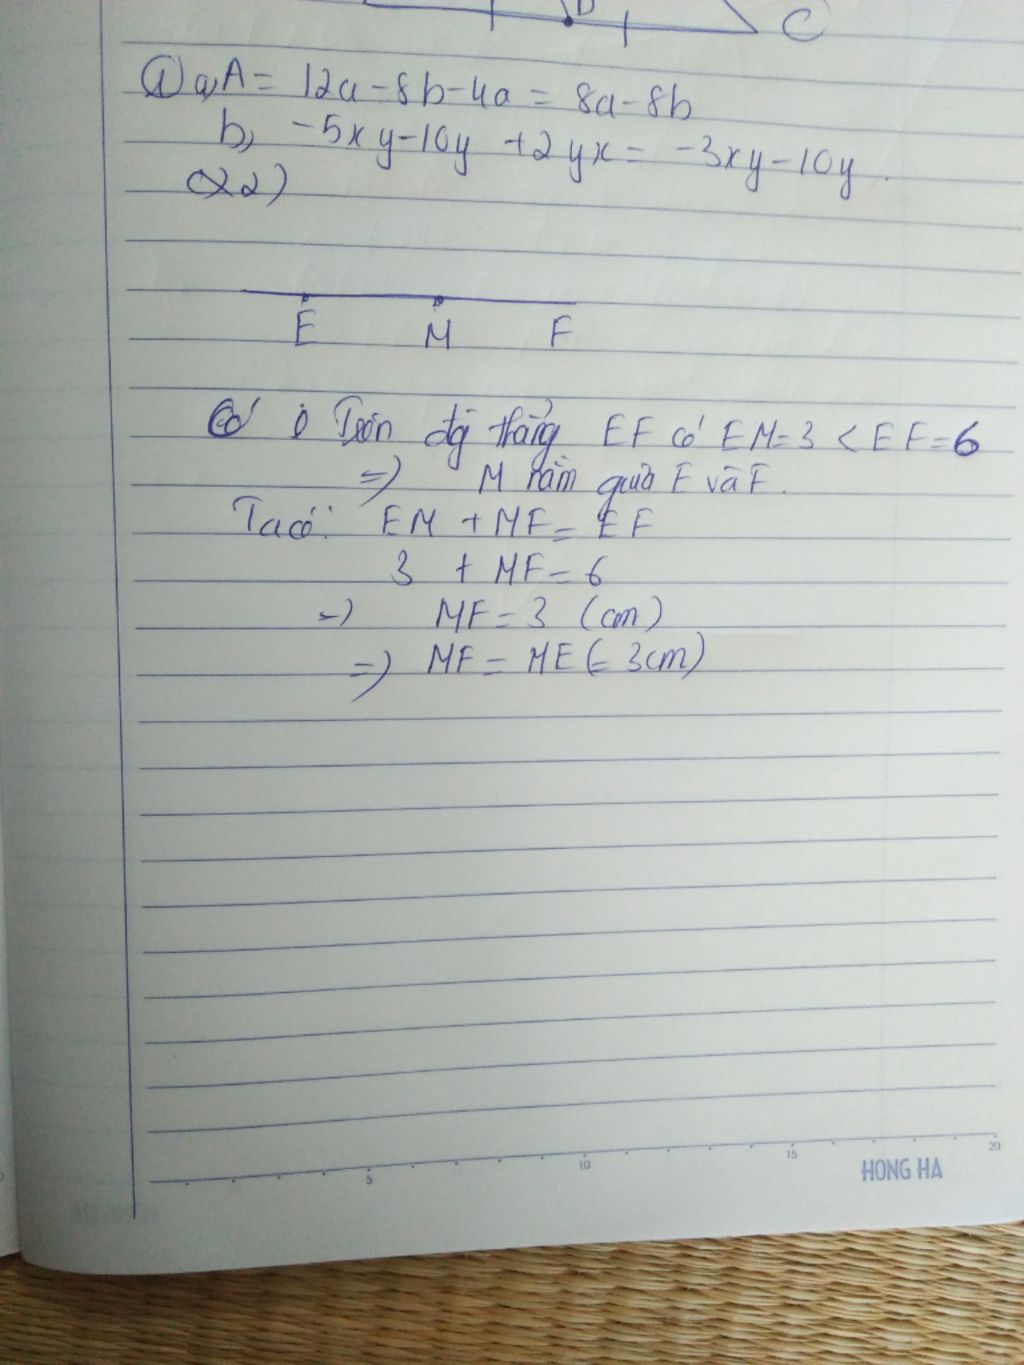 D C
① a, A = 12a - 8b - 4a = 8a - 8b
b, -5xy - 10y + 2yx = -3xy - 10y.
2)
E M F
Có: Trên đg thẳng EF có EM = 3 < EF = 6
=) M nằm giữa E và F.
Ta có: EM + MF = EF
3 + MF = 6
=) MF = 3 (cm)
=) MF = ME (= 3cm)
5 10 15 20
HONG HA